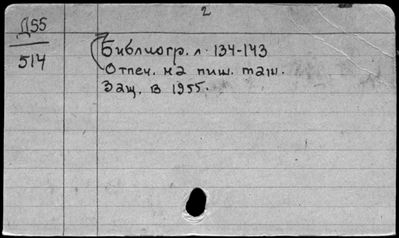 2
Д55
514
Библиогр. л. 134-143
Отпеч. на пиш. маш.
Защ. в 1955.